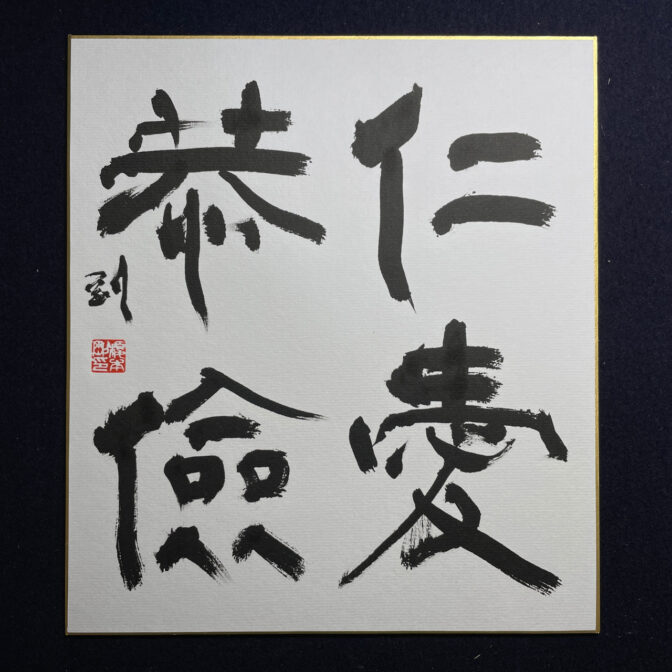 仁愛
恭儉
到